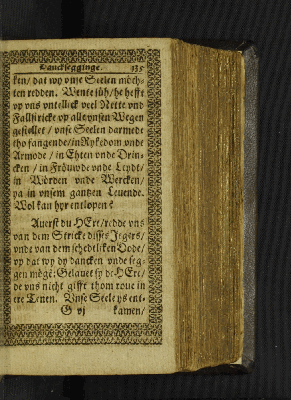 Dancksegginge. 135
ken/ dat wy vnse Seelen möch-
ten redden. Wente süh/ he hefft
vp vns vntellick veel Nette vnd
Fallstricke vp alleynsen Wegen
gestellet / vnse Seelen darmede
tho fangende/ in Rykedom vnde
Armode / in Ehten vnde Drin-
cken / in Fröuwde vnde Leydt/
in Worden vnde Wercken/
ya in vnsem gantzen Leuende.
Wol kan hyr entlopen?
Auerst du HErr/ redde vns
van dem Stricke disses Jegers/
vnde van dem schedtliken Dode/
vp dat wy dy dancken vnde seg-
gen mögē: Gelauet sy de HErr/
de vns nicht gifft thom roue in
ere Tenen. Vnse Seele ys ent-
G vj kamen/